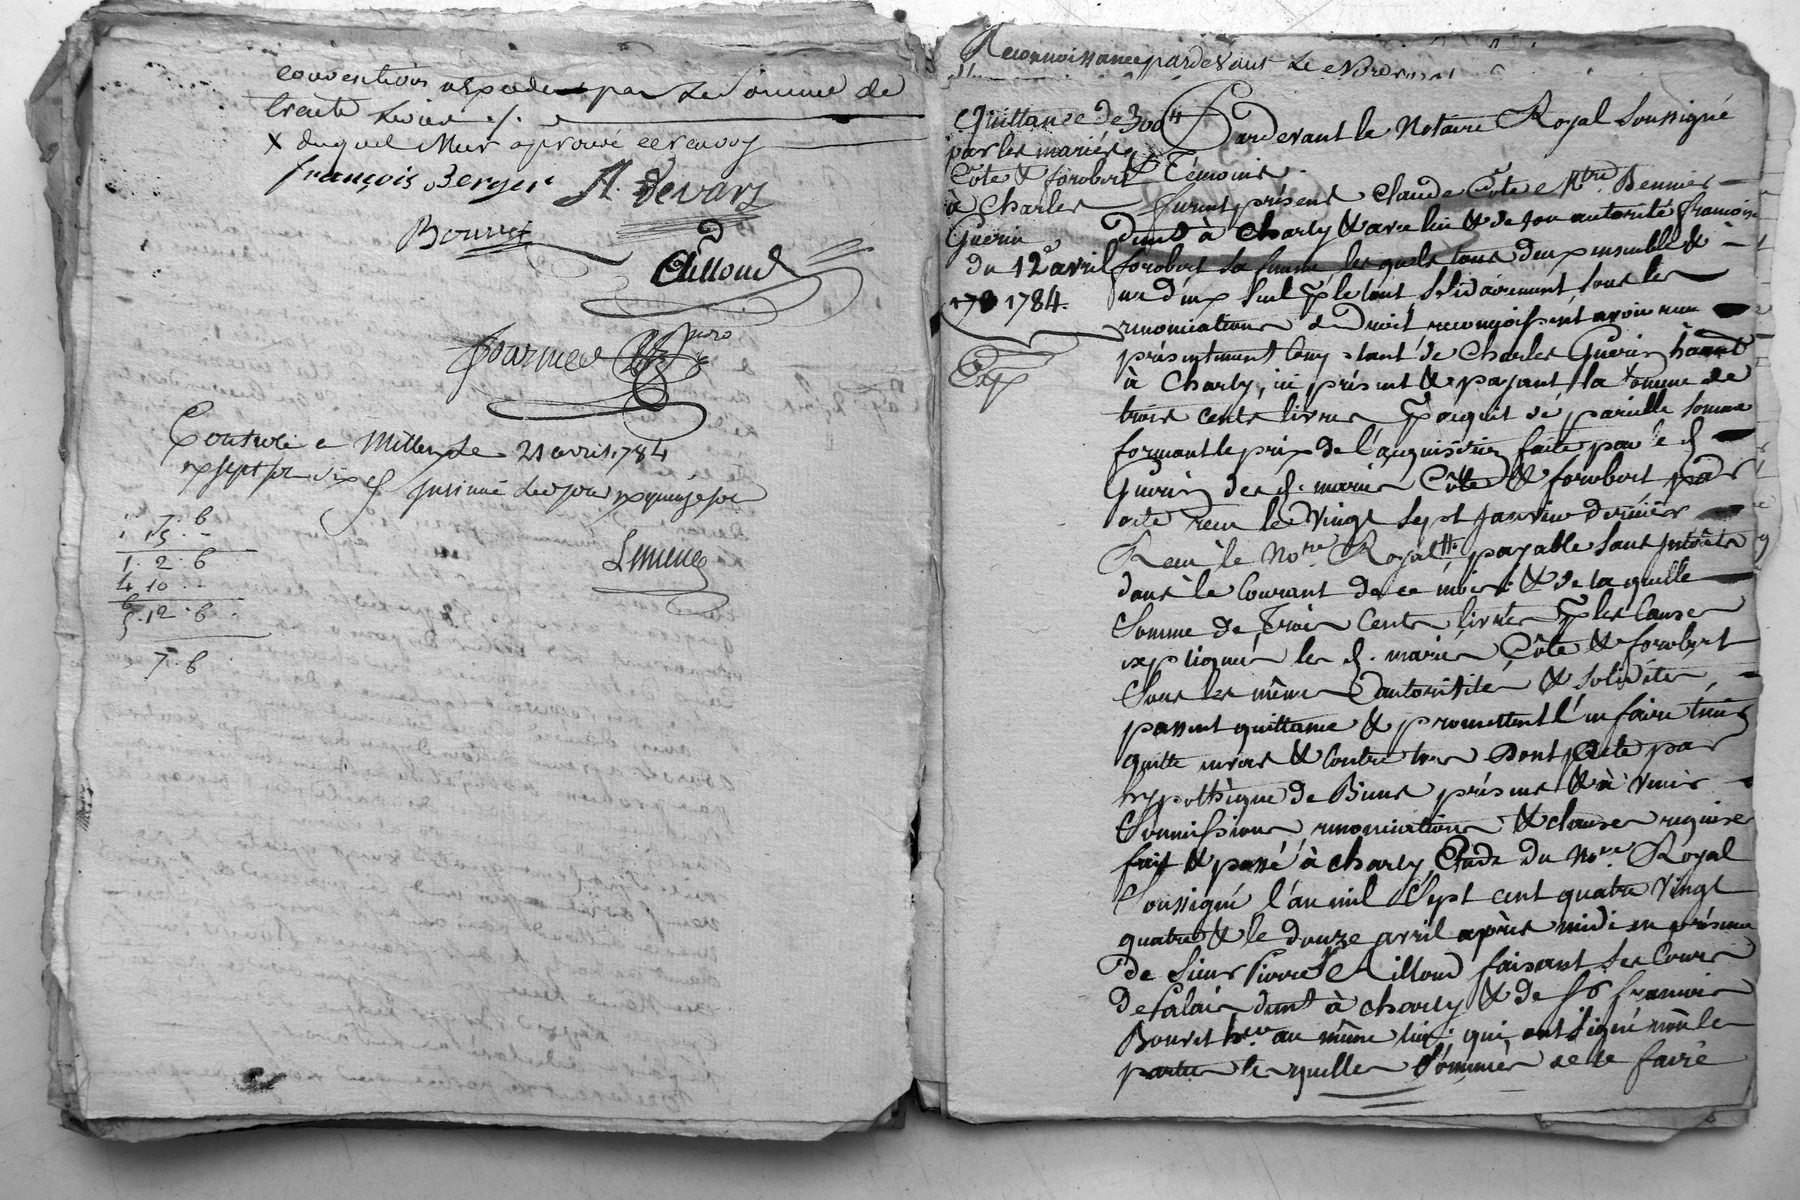 conventions par la Somme de
trente
x duquel Mur aprouvé ce renvoy
françois Berger A. Devarz
Bouvet
Ailloud
Controlé a Millery Le 21 avril 1784
Insinué
7. 6
1. 15. -
1. 2. 6
4. 10 - -
5. 12. 6.
7. 6.
Reconnoissance pardevant Le
Quittance de 300 ₶
par les mariés
Côte & forobert
à Charles
Guerin
du 12 avril
1784.
Exp
Pardevant le Notaire Royal Soussigné
& Témoins.
furent présens Claude Côte Mtre Vennier
dmt à Charly & avec lui & de son autorité françoise
forobert sa femme lesquels tous deux ensemble &
un d'eux seul pr le tout solidairement sous les
renonciations de Droit reconnoissent avoir reçu
présentement comptant de Charles Guerin habt
à Charly, ici présent & payant la somme de
trois cents livres pr acquit de pareille somme
formant le prix de l'acquisition faite par le d.
Guerin des d. mariés Côte & forobert par
acte reçu le vingt sept janvier dernier
Reçu le Nore. Royal payable sans intérêts
dans le Courant de ce mois & de laquelle
Somme de Trois Cents livres pr les Causes
expliquées les d. mariés Côte & forobert
Sous les mêmes autorités & solidités
passent quittance & promettent l'en faire tenir
quitte envers & contre tous Dont acte par
hypothèque de Biens présens & à Venir
Soumissions, renonciations & clauses requises
fait & passé à Charly Étude du Nore. Royal
Soussigné l'an mil Sept cent quatre Vingt
quatre & le douze avril après midi en présence
de Sieur Pierre Ailloud faisant ses Cours
de Palais dmt à Charly & de Sr françois
Bouvet au même lieu qui ont signé non les
parties lesquelles Sommées de le faire